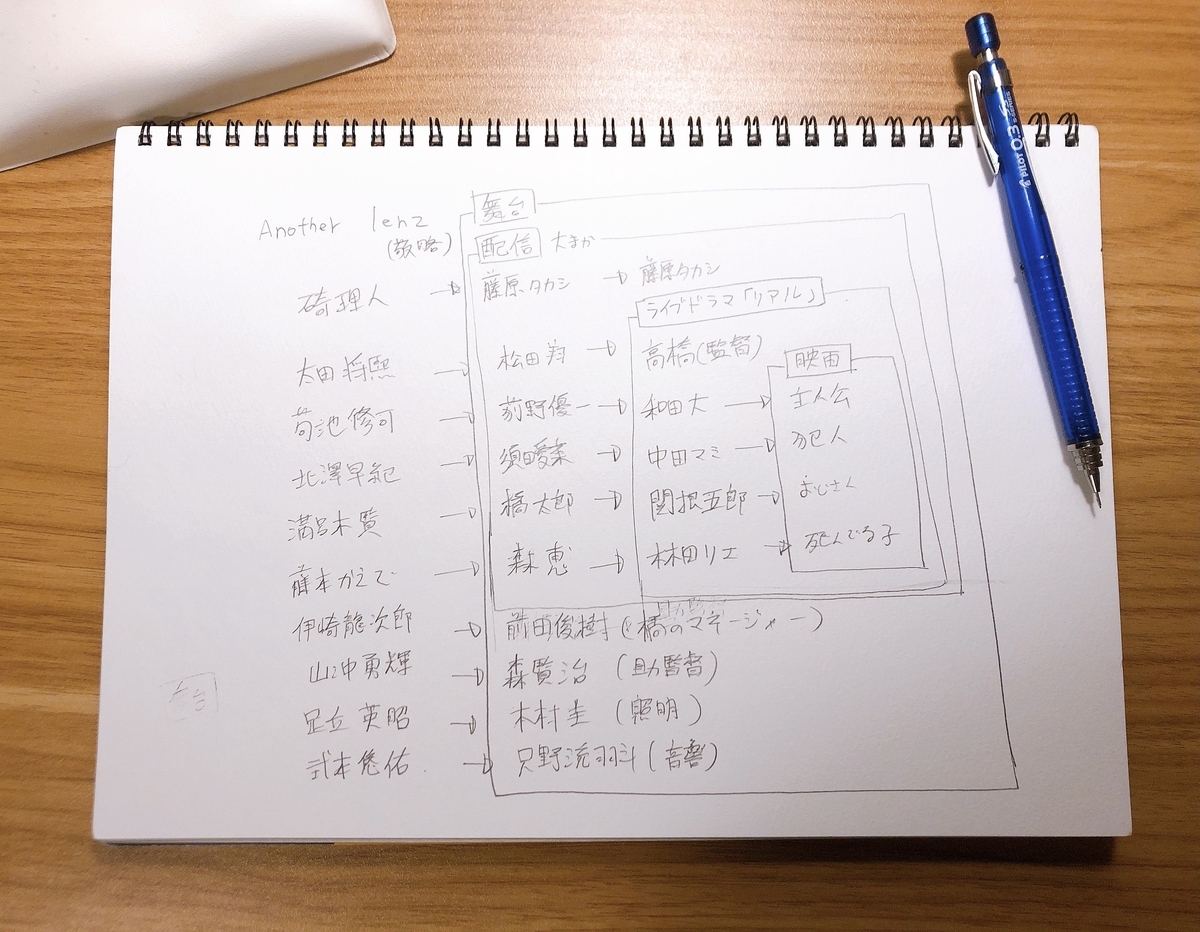 舞台
Another lenz
(敬略)
配信 大まか
碕理人 → 藤原タカシ → 藤原タカシ
ライブドラマ「リアル」
太田将熙 → 松田翔 → 高橋(監督)
映画
菊池修司 → 荻野優一 → 和田大 → 主人公
北澤早紀 → 須田愛菜 → 中田マミ → 犯人
溝呂木賢 → 橘太郎 → 関根五郎 → おじさん
藤本かえで → 森恵 → 林田リエ → 死んでる子
伊崎龍次郎 → 前田俊樹(橘のマネージャー)
山沖勇輝 → 森賢治(助監督)
足立英昭 → 木村圭(照明)
弐本悠佑 → 只野流羽斗(音響)
PILOT 0.3